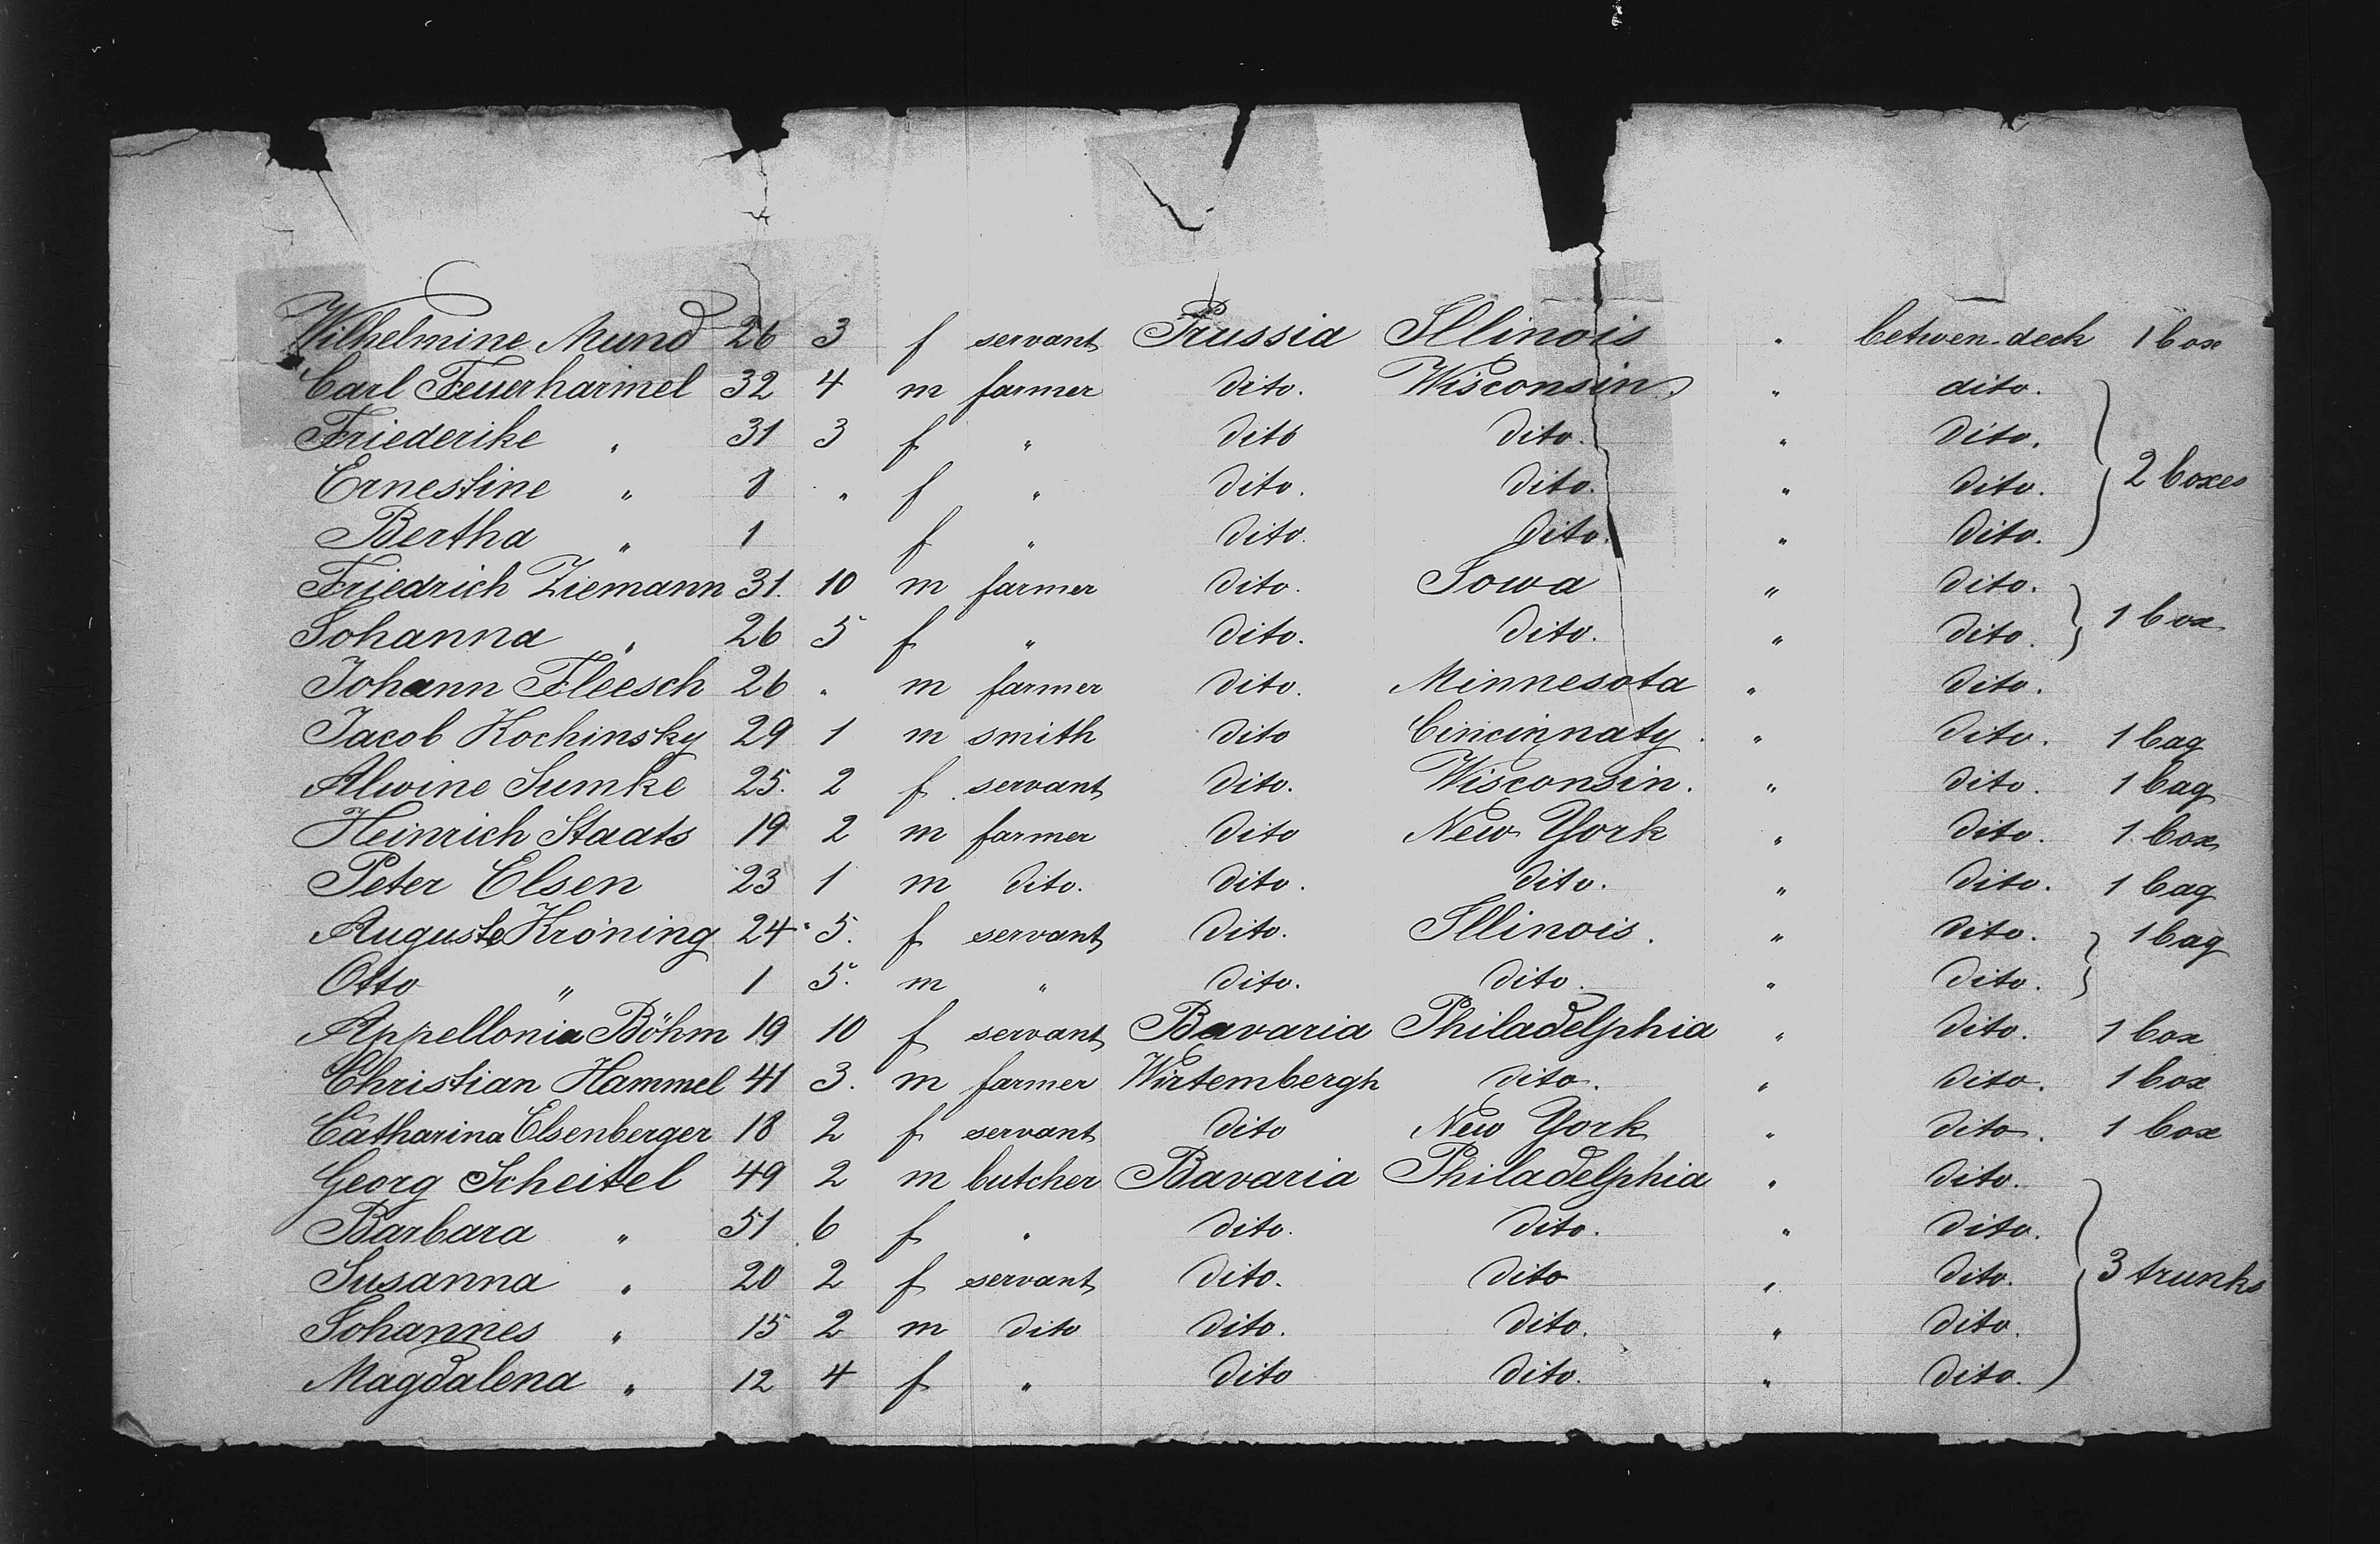 Wilhelmine Mund 26 3 f servant Prussia Illinois " betwen deck 1 box
Carl Feuerharmel 32 4 m farmer dito. Wisconsin " dito.
Friederike " 31 3 f " dito dito. " dito.
Ernestine " 8 " f " dito. dito. " dito. 2 boxes
Bertha " 1 f " dito. dito. " dito.
Friedrich Ziemann 31. 10 m farmer dito. Iowa " dito.
Johanna " 26 5 f " dito. dito. " dito. 1 box
Johann Fleesch 26 " m farmer dito. Minnesota " dito.
Jacob Kochinsky 29 1 m smith dito Cincinnaty. " dito. 1 bag
Alwine Sumke 25. 2 f. servant dito. Wisconsin. " dito. 1 bag
Heinrich Staats 19 2 m farmer dito New York " dito. 1 box
Peter Elsen 23 1 m dito. dito. dito. " dito. 1 bag
Auguste Kröning 24 5. f servant dito. Illinois. " dito. 1 bag
Otto " 1 5. m " dito. dito. " dito.
Appellonia Böhm 19 10 f servant Bavaria Philadelphia " dito. 1 box
Christian Hammel 41 3. m farmer Wirtembergh dito. " dito. 1 box
Catharina Elsenberger 18 2 f servant dito New York " dito. 1 box
Georg Scheitel 49 2 m butcher Bavaria Philadelphia " dito.
Barbara " 51 6 f " dito. dito. " dito.
Susanna " 20 2 f servant dito. dito " dito. 3 trunks
Johannes " 15 2 m dito dito. dito. " dito.
Magdalena " 12 4 f " dito dito. " dito.